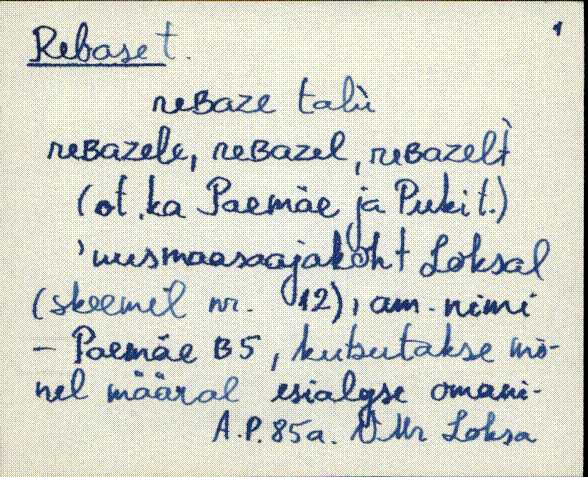 1
Rebase t.
reBaze talù
reBazele, reBazel, reBazelt̀
(ot. ka Paemäe ja Puki t.)
'uusmaasaajakoht Loksal
(skeemil nr. 12), am. nimi
– Paemäe B5, kutsutakse mõ-
nel määral esialgse omani-
A.P. 85a. VMr Loksa